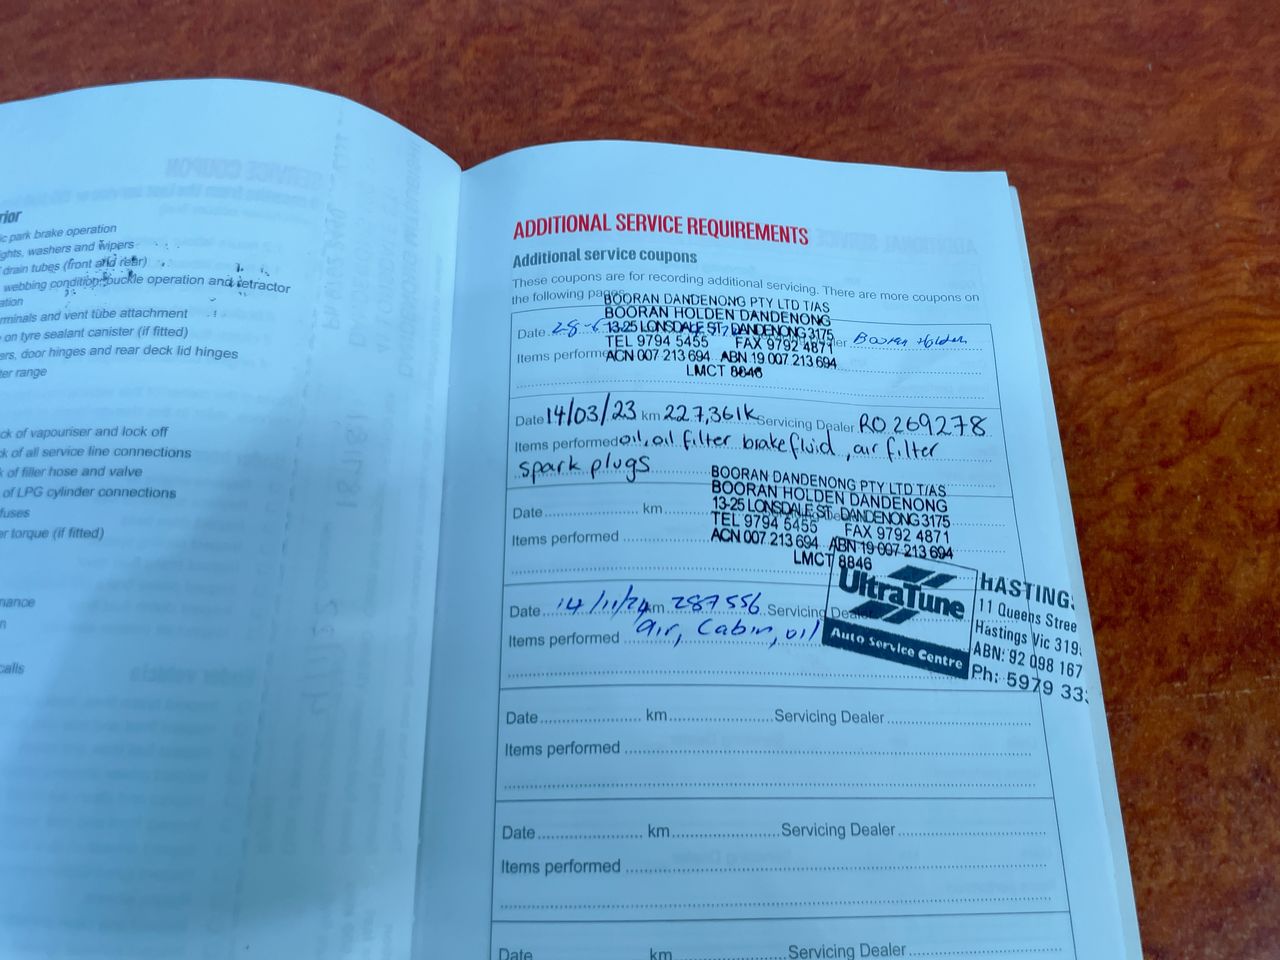 rior
ic park brake operation
ights, washers and wipers
drain tubes (front and rear)
webbing condition, buckle operation and retractor
ation
rminals and vent tube attachment
on tyre sealant canister (if fitted)
ers, door hinges and rear deck lid hinges
ter range
ck of vapouriser and lock off
k of all service line connections
k of filler hose and valve
of LPG cylinder connections
fuses
er torque (if fitted)
nance
n
calls
ADDITIONAL SERVICE REQUIREMENTS
Additional service coupons
These coupons are for recording additional servicing. There are more coupons on
the following pages
BOORAN DANDENONG PTY LTD T/AS
BOORAN HOLDEN DANDENONG
Date 28-6 13-25 LONSDALE ST DANDENONG 3175 Booran Holden
TEL 9794 5455 FAX 9792 4871
Items performed ACN 007 213 694 ABN 19 007 213 694
LMCT 8846
Date 14/03/23 km 227,361K Servicing Dealer RO 269278
Items performed oil, oil filter brake fluid, air filter
spark plugs
BOORAN DANDENONG PTY LTD T/AS
BOORAN HOLDEN DANDENONG
Date km 13-25 LONSDALE ST DANDENONG 3175
TEL 9794 5455 FAX 9792 4871
Items performed ACN 007 213 694 ABN 19 007 213 694
LMCT 8846
UltraTune
Auto Service Centre
HASTING
11 Queens Stree
Hastings Vic 319
ABN: 92 098 167
Ph: 5979 33
Date 14/11/24 km 287556 Servicing Dealer
Items performed air, Cabin, oil
Date km Servicing Dealer
Items performed
Date km Servicing Dealer
Items performed
Date km Servicing Dealer